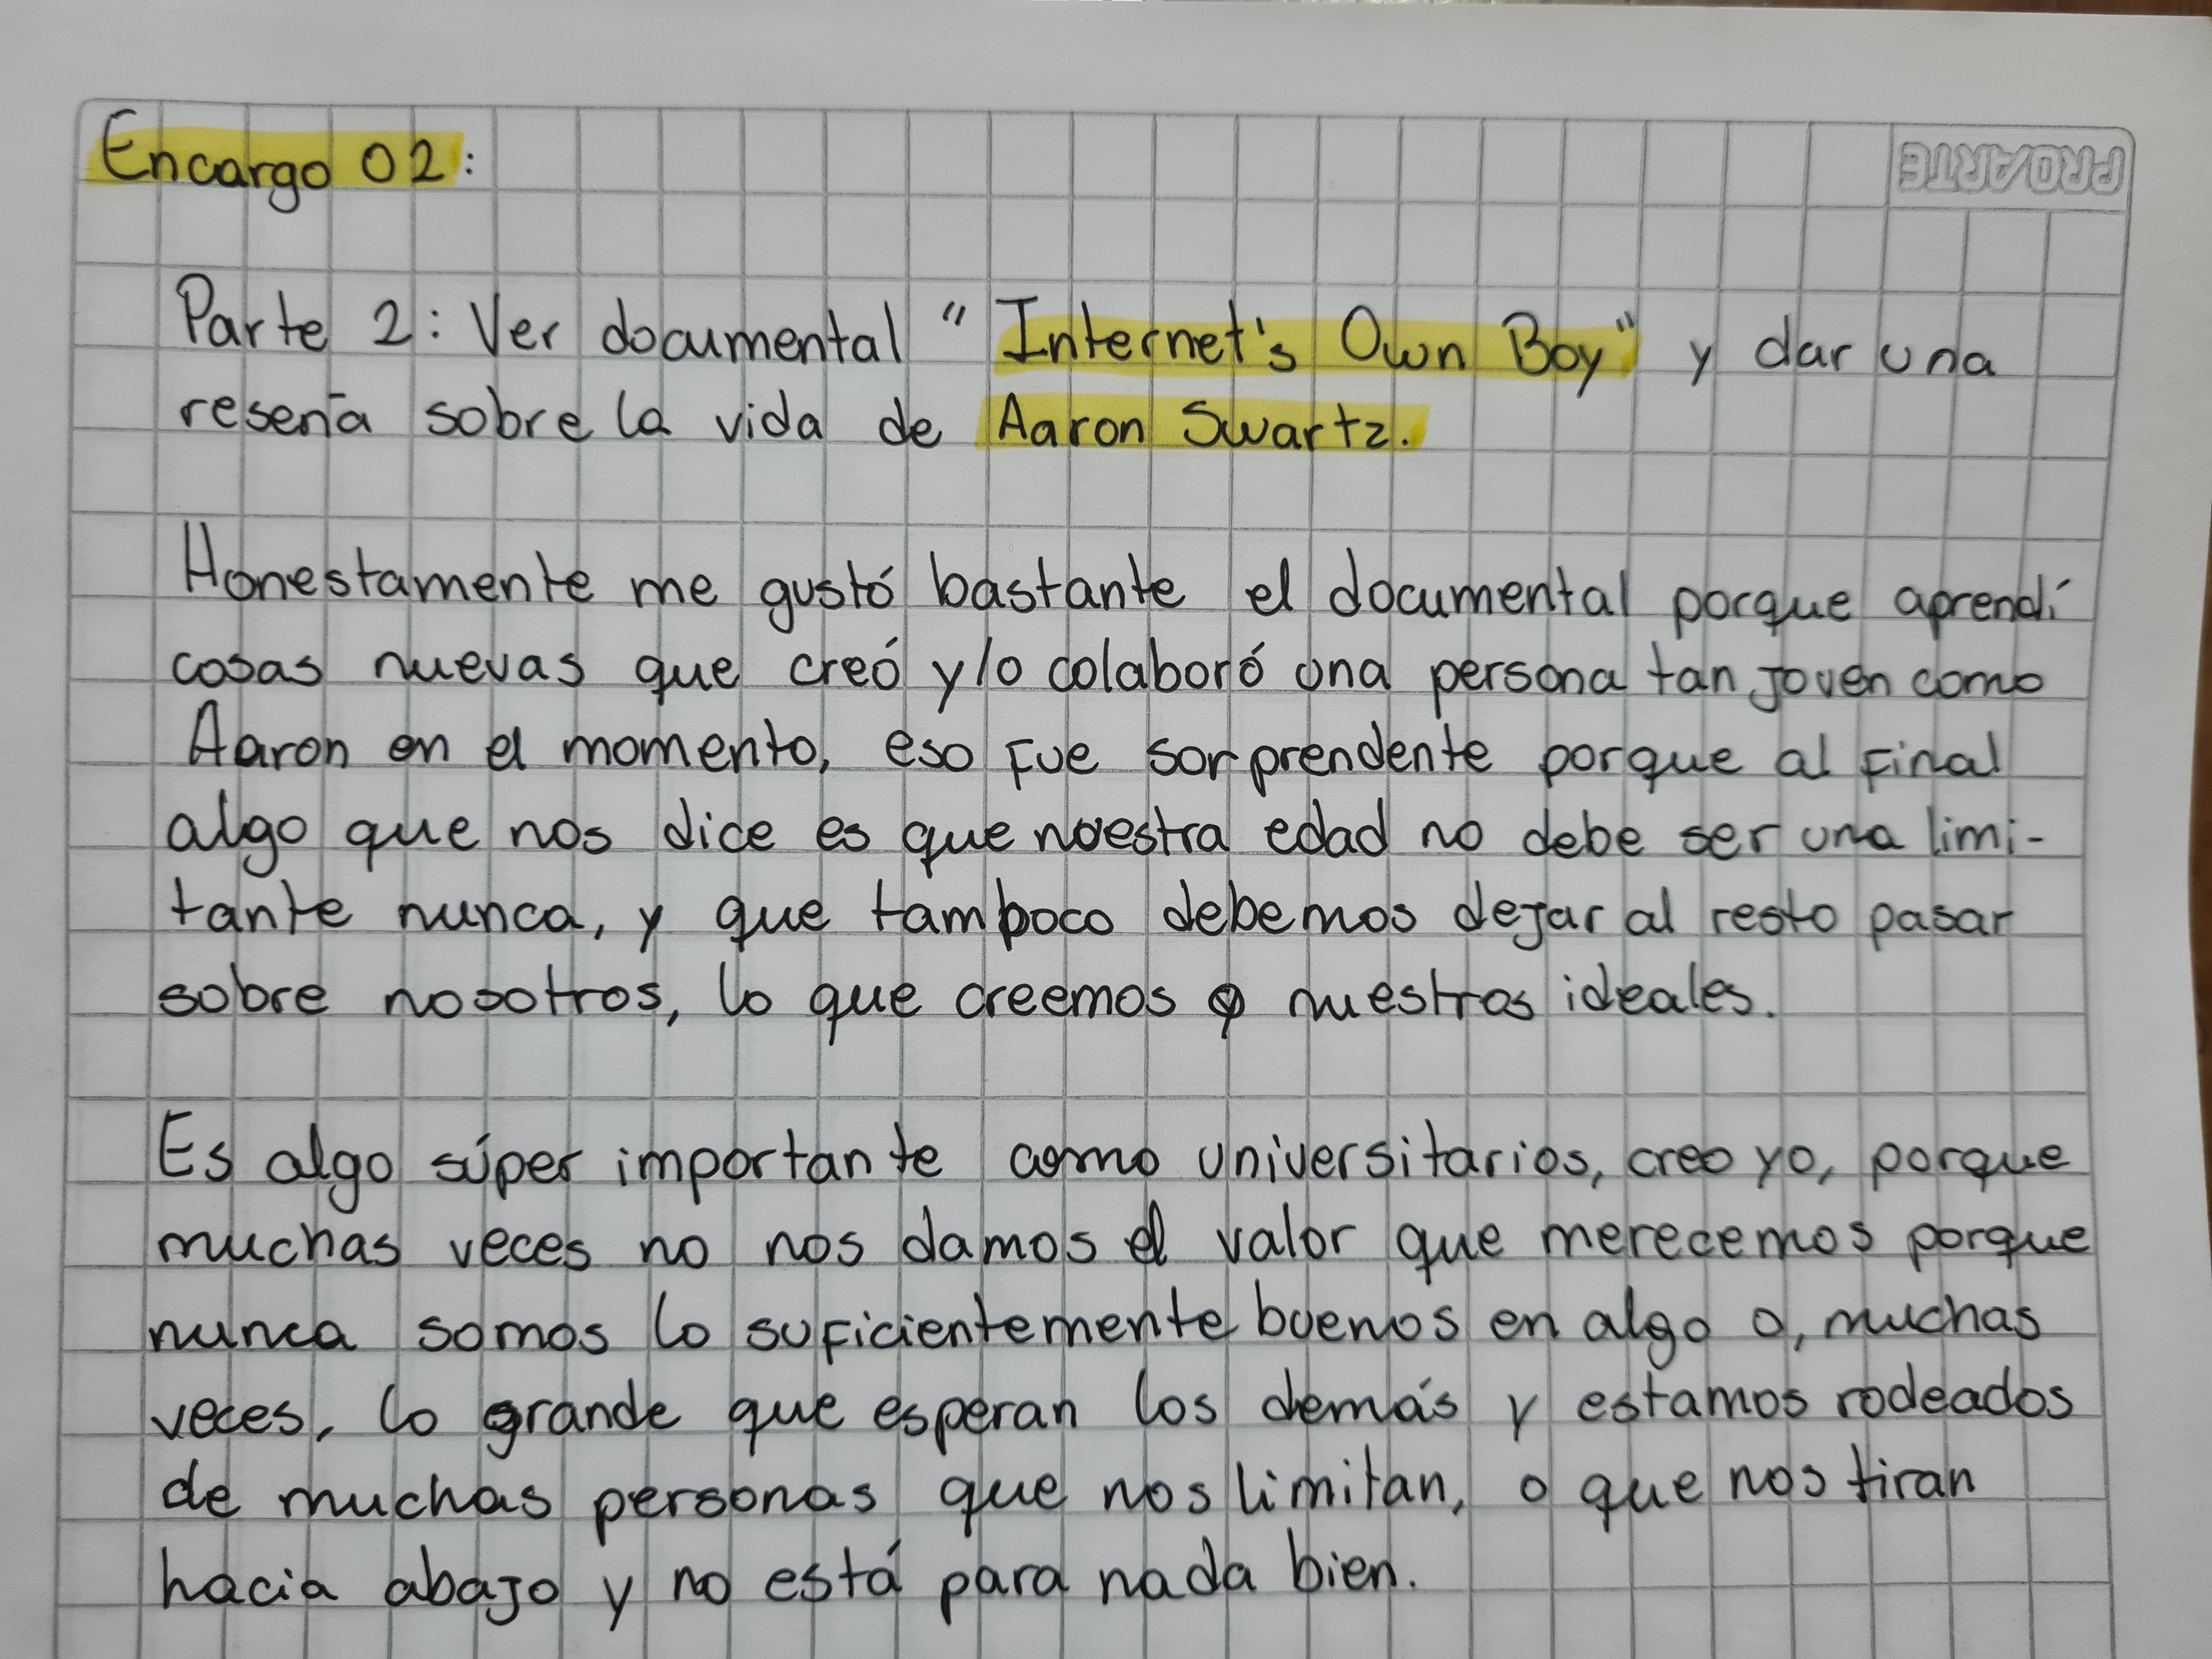 Encargo 02:
PROARTE
Parte 2: Ver documental "Internet's Own Boy" y dar una
reseña sobre la vida de Aaron Swartz.
Honestamente me gustó bastante el documental porque aprendí
cosas nuevas que creó y/o colaboró una persona tan joven como
Aaron en el momento, eso fue sorprendente porque al final
algo que nos dice es que nuestra edad no debe ser una limi-
tante nunca, y que tampoco debemos dejar al resto pasar
sobre nosotros, lo que creemos o nuestros ideales.
Es algo súper importante como universitarios, creo yo, porque
muchas veces no nos damos el valor que merecemos porque
nunca somos lo suficientemente buenos en algo o, muchas
veces, lo grande que esperan los demás y estamos rodeados
de muchas personas que nos limitan, o que nos tiran
hacia abajo y no está para nada bien.